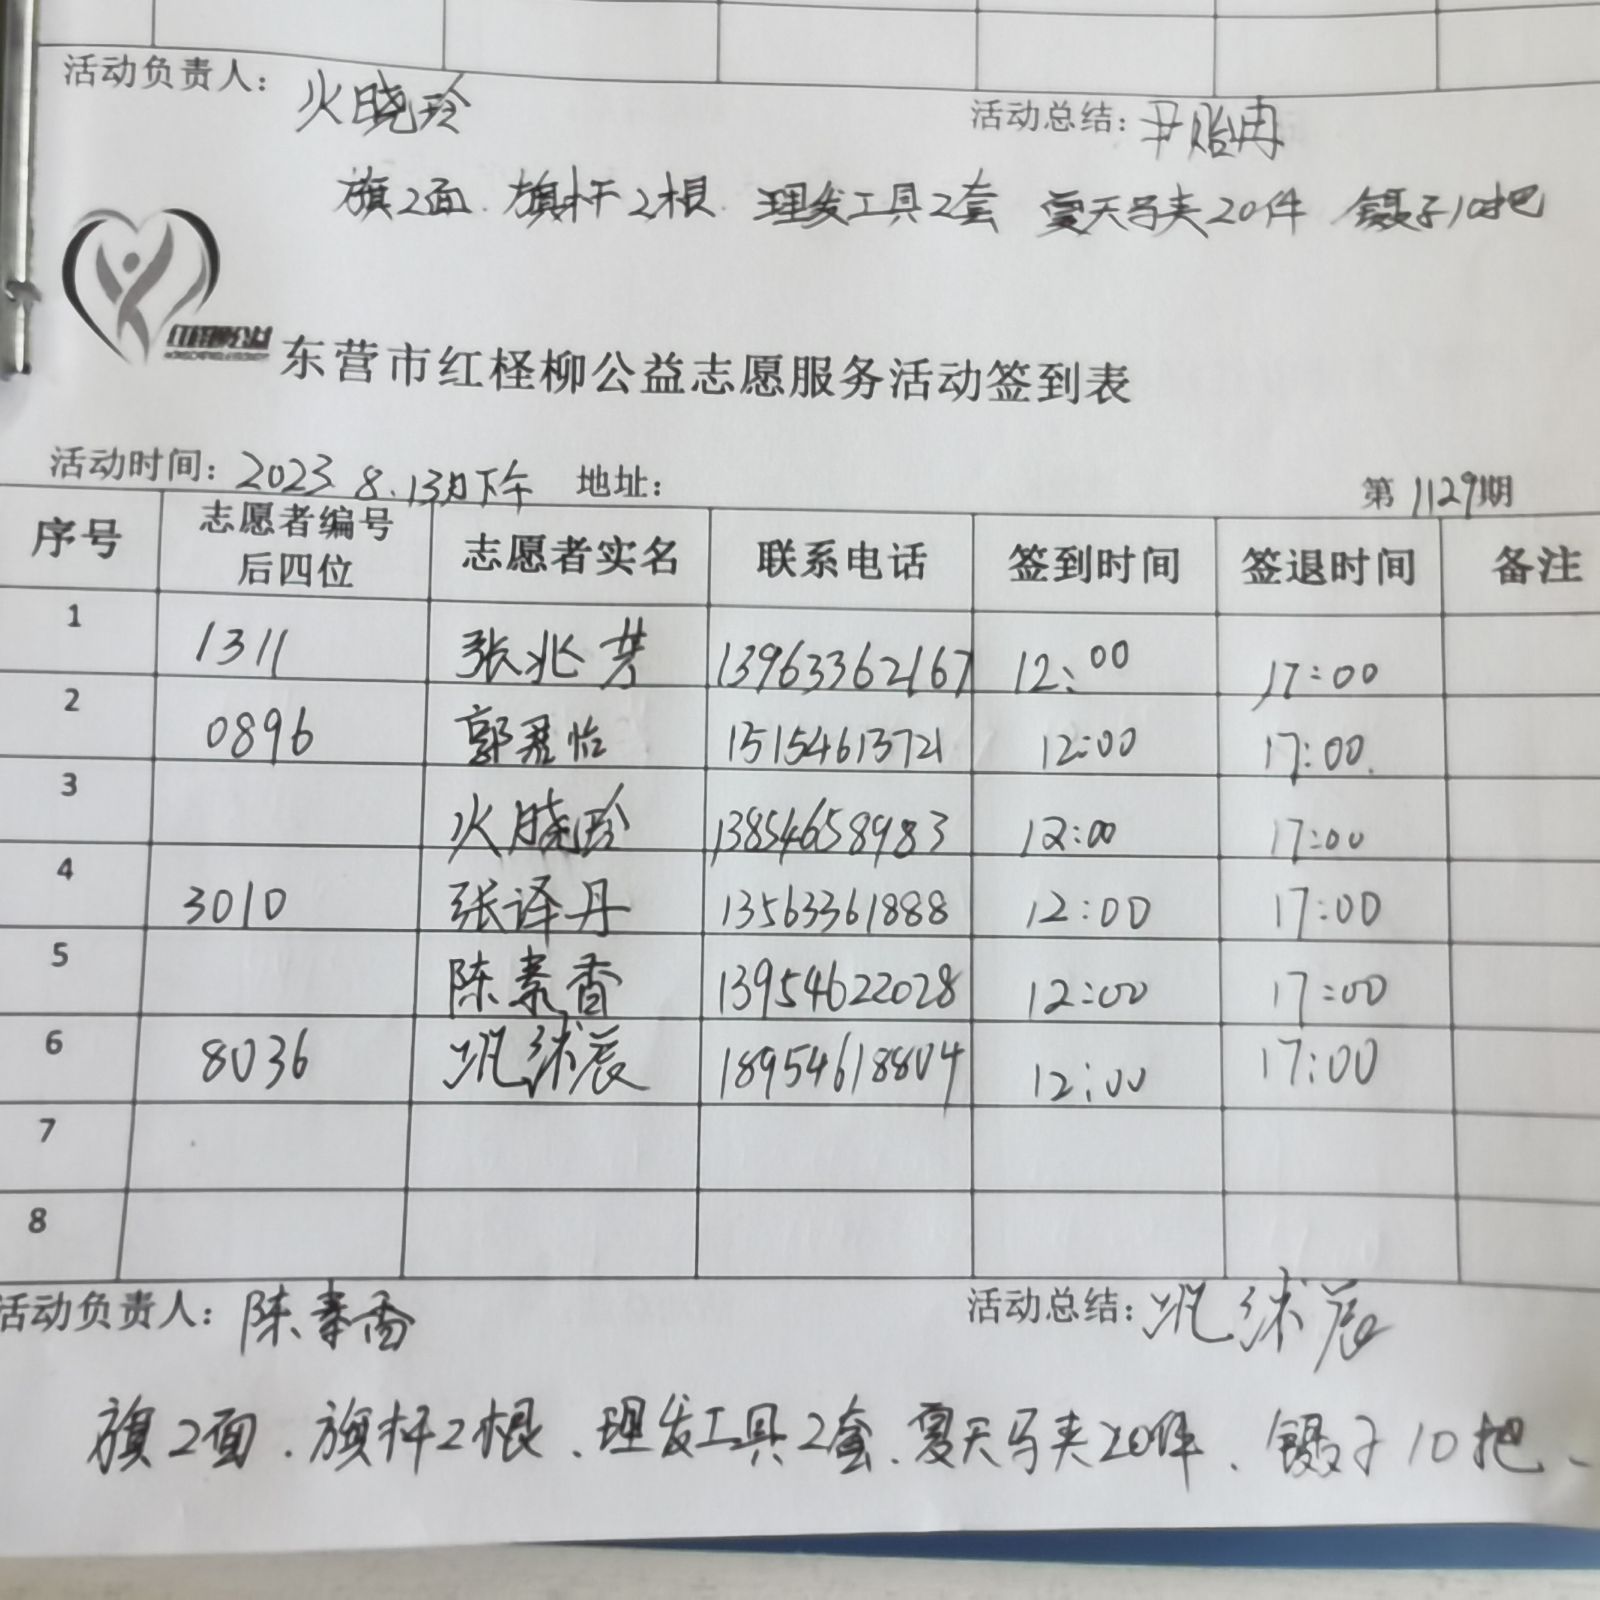 活动负责人： 火晓玲 活动总结： 尹贻冉
旗2面. 旗杆2根. 理发工具2套 夏天马夹20件 镊子10把
东营市红柽柳公益志愿服务活动签到表
活动时间：2023.8.13日下午 地址： 第1129期
序号 志愿者编号后四位 志愿者实名 联系电话 签到时间 签退时间 备注
1 1311 张兆芳 13963362167 12:00 17:00
2 0896 郭君怡 15154613721 12:00 17:00.
3 火晓玲 13854658983 12:00 17:00
4 3010 张译丹 13563361888 12:00 17:00
5 陈素香 13954622028 12:00 17:00
6 8036 18954618804 12:00 17:00
7
8
活动负责人：陈素香 活动总结：
旗2面、旗杆2根、理发工具2套、夏天马夹20件、镊子10把、